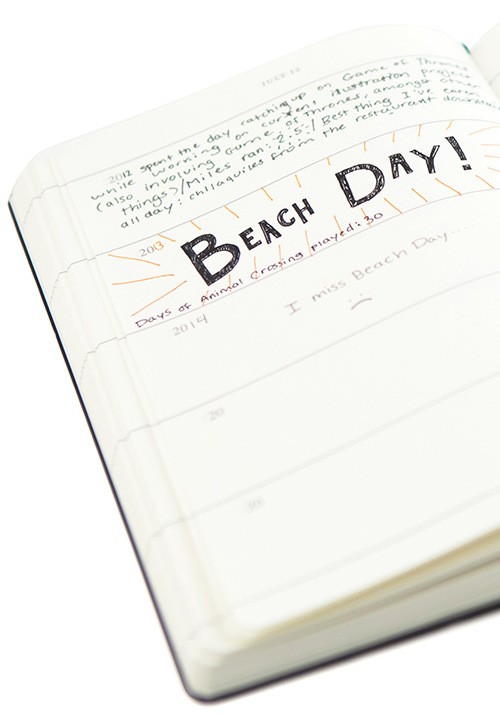 JULY 12
2012 spent the day catching up on Game of Thrones
while working on current illustration project
(also involving Game of Thrones, amongst other
things)/Miles ran: 2.5/Best thing I've eaten
all day: chilaquiles from the restaurant downstairs
2013 BEACH DAY!
Days of Animal Crossing played: 30
2014 I miss Beach Day....
:(
20
20